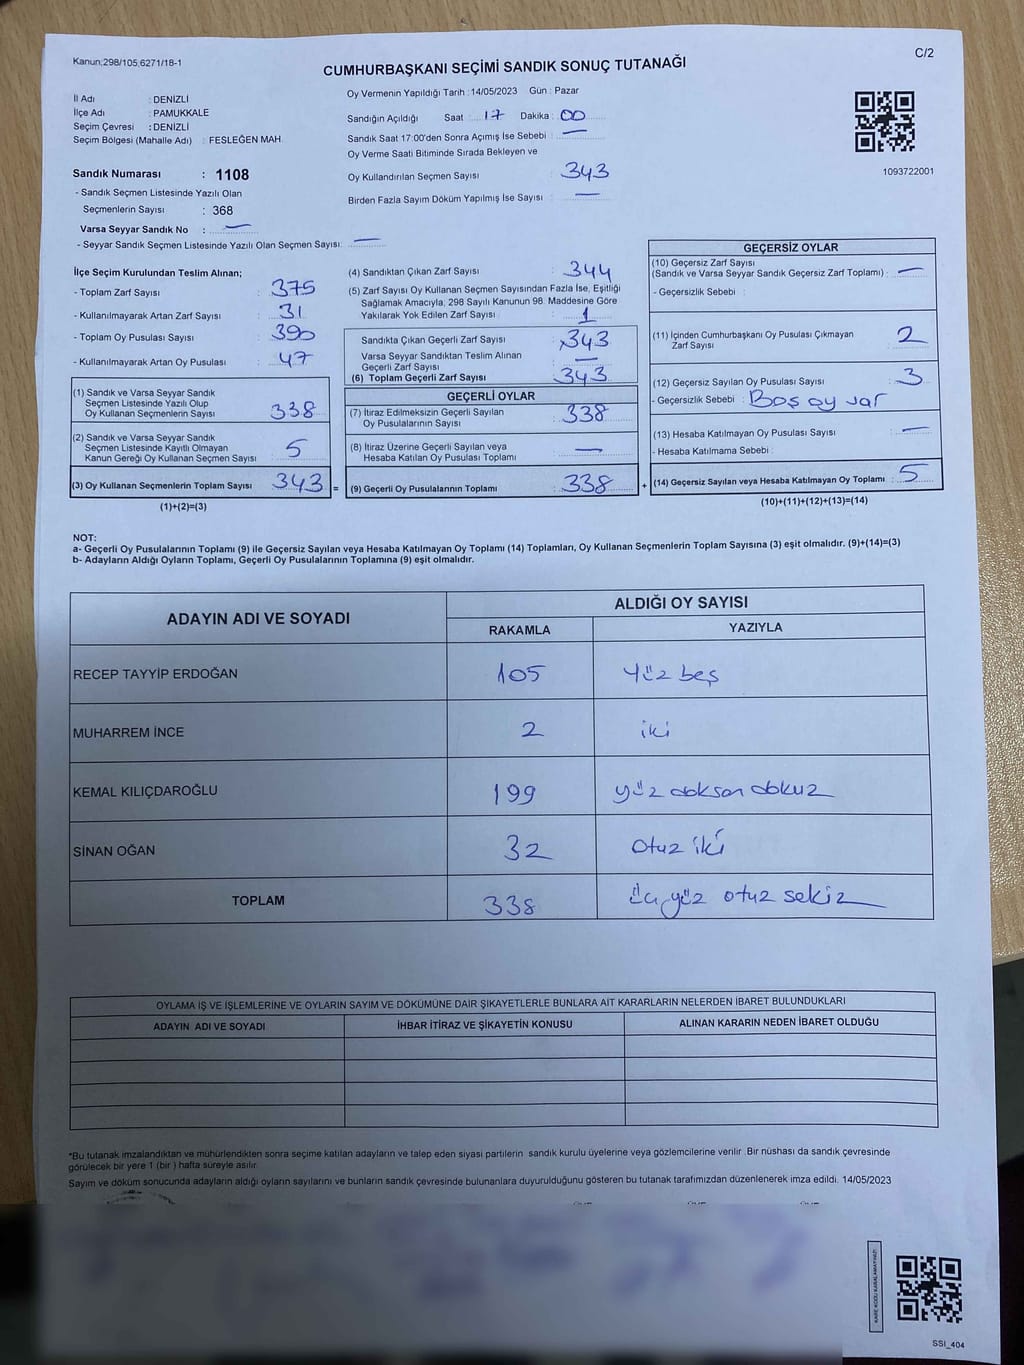 Kanun;298/105,6271/18-1
C/2
CUMHURBAŞKANI SEÇİMİ SANDIK SONUÇ TUTANAĞI
İl Adı : DENİZLİ
İlçe Adı : PAMUKKALE
Seçim Çevresi : DENİZLİ
Seçim Bölgesi (Mahalle Adı) : FESLEĞEN MAH.
Oy Vermenin Yapıldığı Tarih :14/05/2023 Gün : Pazar
Sandığın Açıldığı Saat 17 Dakika : 00
Sandık Saat 17:00'den Sonra Açımış İse Sebebi : —
Oy Verme Saati Bitiminde Sırada Bekleyen ve
Oy Kullandırılan Seçmen Sayısı : 343
Birden Fazla Sayım Döküm Yapılmış İse Sayısı : —
1093722001
Sandık Numarası : 1108
- Sandık Seçmen Listesinde Yazılı Olan
Seçmenlerin Sayısı : 368
Varsa Seyyar Sandık No : —
- Seyyar Sandık Seçmen Listesinde Yazılı Olan Seçmen Sayısı: —
İlçe Seçim Kurulundan Teslim Alınan;
- Toplam Zarf Sayısı : 375
- Kullanılmayarak Artan Zarf Sayısı : 31
- Toplam Oy Pusulası Sayısı : 390
- Kullanılmayarak Artan Oy Pusulası : 47
(1) Sandık ve Varsa Seyyar Sandık
Seçmen Listesinde Yazılı Olup
Oy Kullanan Seçmenlerin Sayısı : 338
(2) Sandık ve Varsa Seyyar Sandık
Seçmen Listesinde Kayıtlı Olmayan
Kanun Gereği Oy Kullanan Seçmen Sayısı : 5
(3) Oy Kullanan Seçmenlerin Toplam Sayısı : 343 =
(1)+(2)=(3)
(4) Sandıktan Çıkan Zarf Sayısı : 344
(5) Zarf Sayısı Oy Kullanan Seçmen Sayısından Fazla İse, Eşitliği
Sağlamak Amacıyla; 298 Sayılı Kanunun 98. Maddesine Göre
Yakılarak Yok Edilen Zarf Sayısı : 1
Sandıkta Çıkan Geçerli Zarf Sayısı : 343
Varsa Seyyar Sandıktan Teslim Alınan
Geçerli Zarf Sayısı : —
(6) Toplam Geçerli Zarf Sayısı : 343
GEÇERLİ OYLAR
(7) İtiraz Edilmeksizin Geçerli Sayılan
Oy Pusulalarının Sayısı : 338
(8) İtiraz Üzerine Geçerli Sayılan veya
Hesaba Katılan Oy Pusulası Toplamı : —
(9) Geçerli Oy Pusulalarının Toplamı : 338 +
GEÇERSİZ OYLAR
(10) Geçersiz Zarf Sayısı
(Sandık ve Varsa Seyyar Sandık Geçersiz Zarf Toplamı) : —
- Geçersizlik Sebebi :
(11) İçinden Cumhurbaşkanı Oy Pusulası Çıkmayan
Zarf Sayısı : 2
(12) Geçersiz Sayılan Oy Pusulası Sayısı : 3
- Geçersizlik Sebebi : Boş oy var
(13) Hesaba Katılmayan Oy Pusulası Sayısı : —
- Hesaba Katılmama Sebebi :
(14) Geçersiz Sayılan veya Hesaba Katılmayan Oy Toplamı : 5
(10)+(11)+(12)+(13)=(14)
NOT:
a- Geçerli Oy Pusulalarının Toplamı (9) ile Geçersiz Sayılan veya Hesaba Katılmayan Oy Toplamı (14) Toplamları, Oy Kullanan Seçmenlerin Toplam Sayısına (3) eşit olmalıdır. (9)+(14)=(3)
b- Adayların Aldığı Oyların Toplamı, Geçerli Oy Pusulalarının Toplamına (9) eşit olmalıdır.
ADAYIN ADI VE SOYADI
ALDIĞI OY SAYISI
RAKAMLA YAZIYLA
RECEP TAYYİP ERDOĞAN 105 Yüz beş
MUHARREM İNCE 2 iki
KEMAL KILIÇDAROĞLU 199 yüz doksan dokuz
SİNAN OĞAN 32 otuz iki
TOPLAM 338 üçyüz otuz sekiz
OYLAMA İŞ VE İŞLEMLERİNE VE OYLARIN SAYIM VE DÖKÜMÜNE DAİR ŞİKAYETLERLE BUNLARA AİT KARARLARIN NELERDEN İBARET BULUNDUKLARI
ADAYIN ADI VE SOYADI İHBAR İTİRAZ VE ŞİKAYETİN KONUSU ALINAN KARARIN NEDEN İBARET OLDUĞU
*Bu tutanak imzalandıktan ve mühürlendikten sonra seçime katılan adayların ve talep eden siyasi partilerin sandık kurulu üyelerine veya gözlemcilerine verilir. Bir nüshası da sandık çevresinde
görülecek bir yere 1 (bir ) hafta süreyle asılır.
Sayım ve döküm sonucunda adayların aldığı oyların sayılarını ve bunların sandık çevresinde bulunanlara duyurulduğunu gösteren bu tutanak tarafımızdan düzenlenerek imza edildi. 14/05/2023
KARE KODU KARALAMAYINIZ!
SSI_404